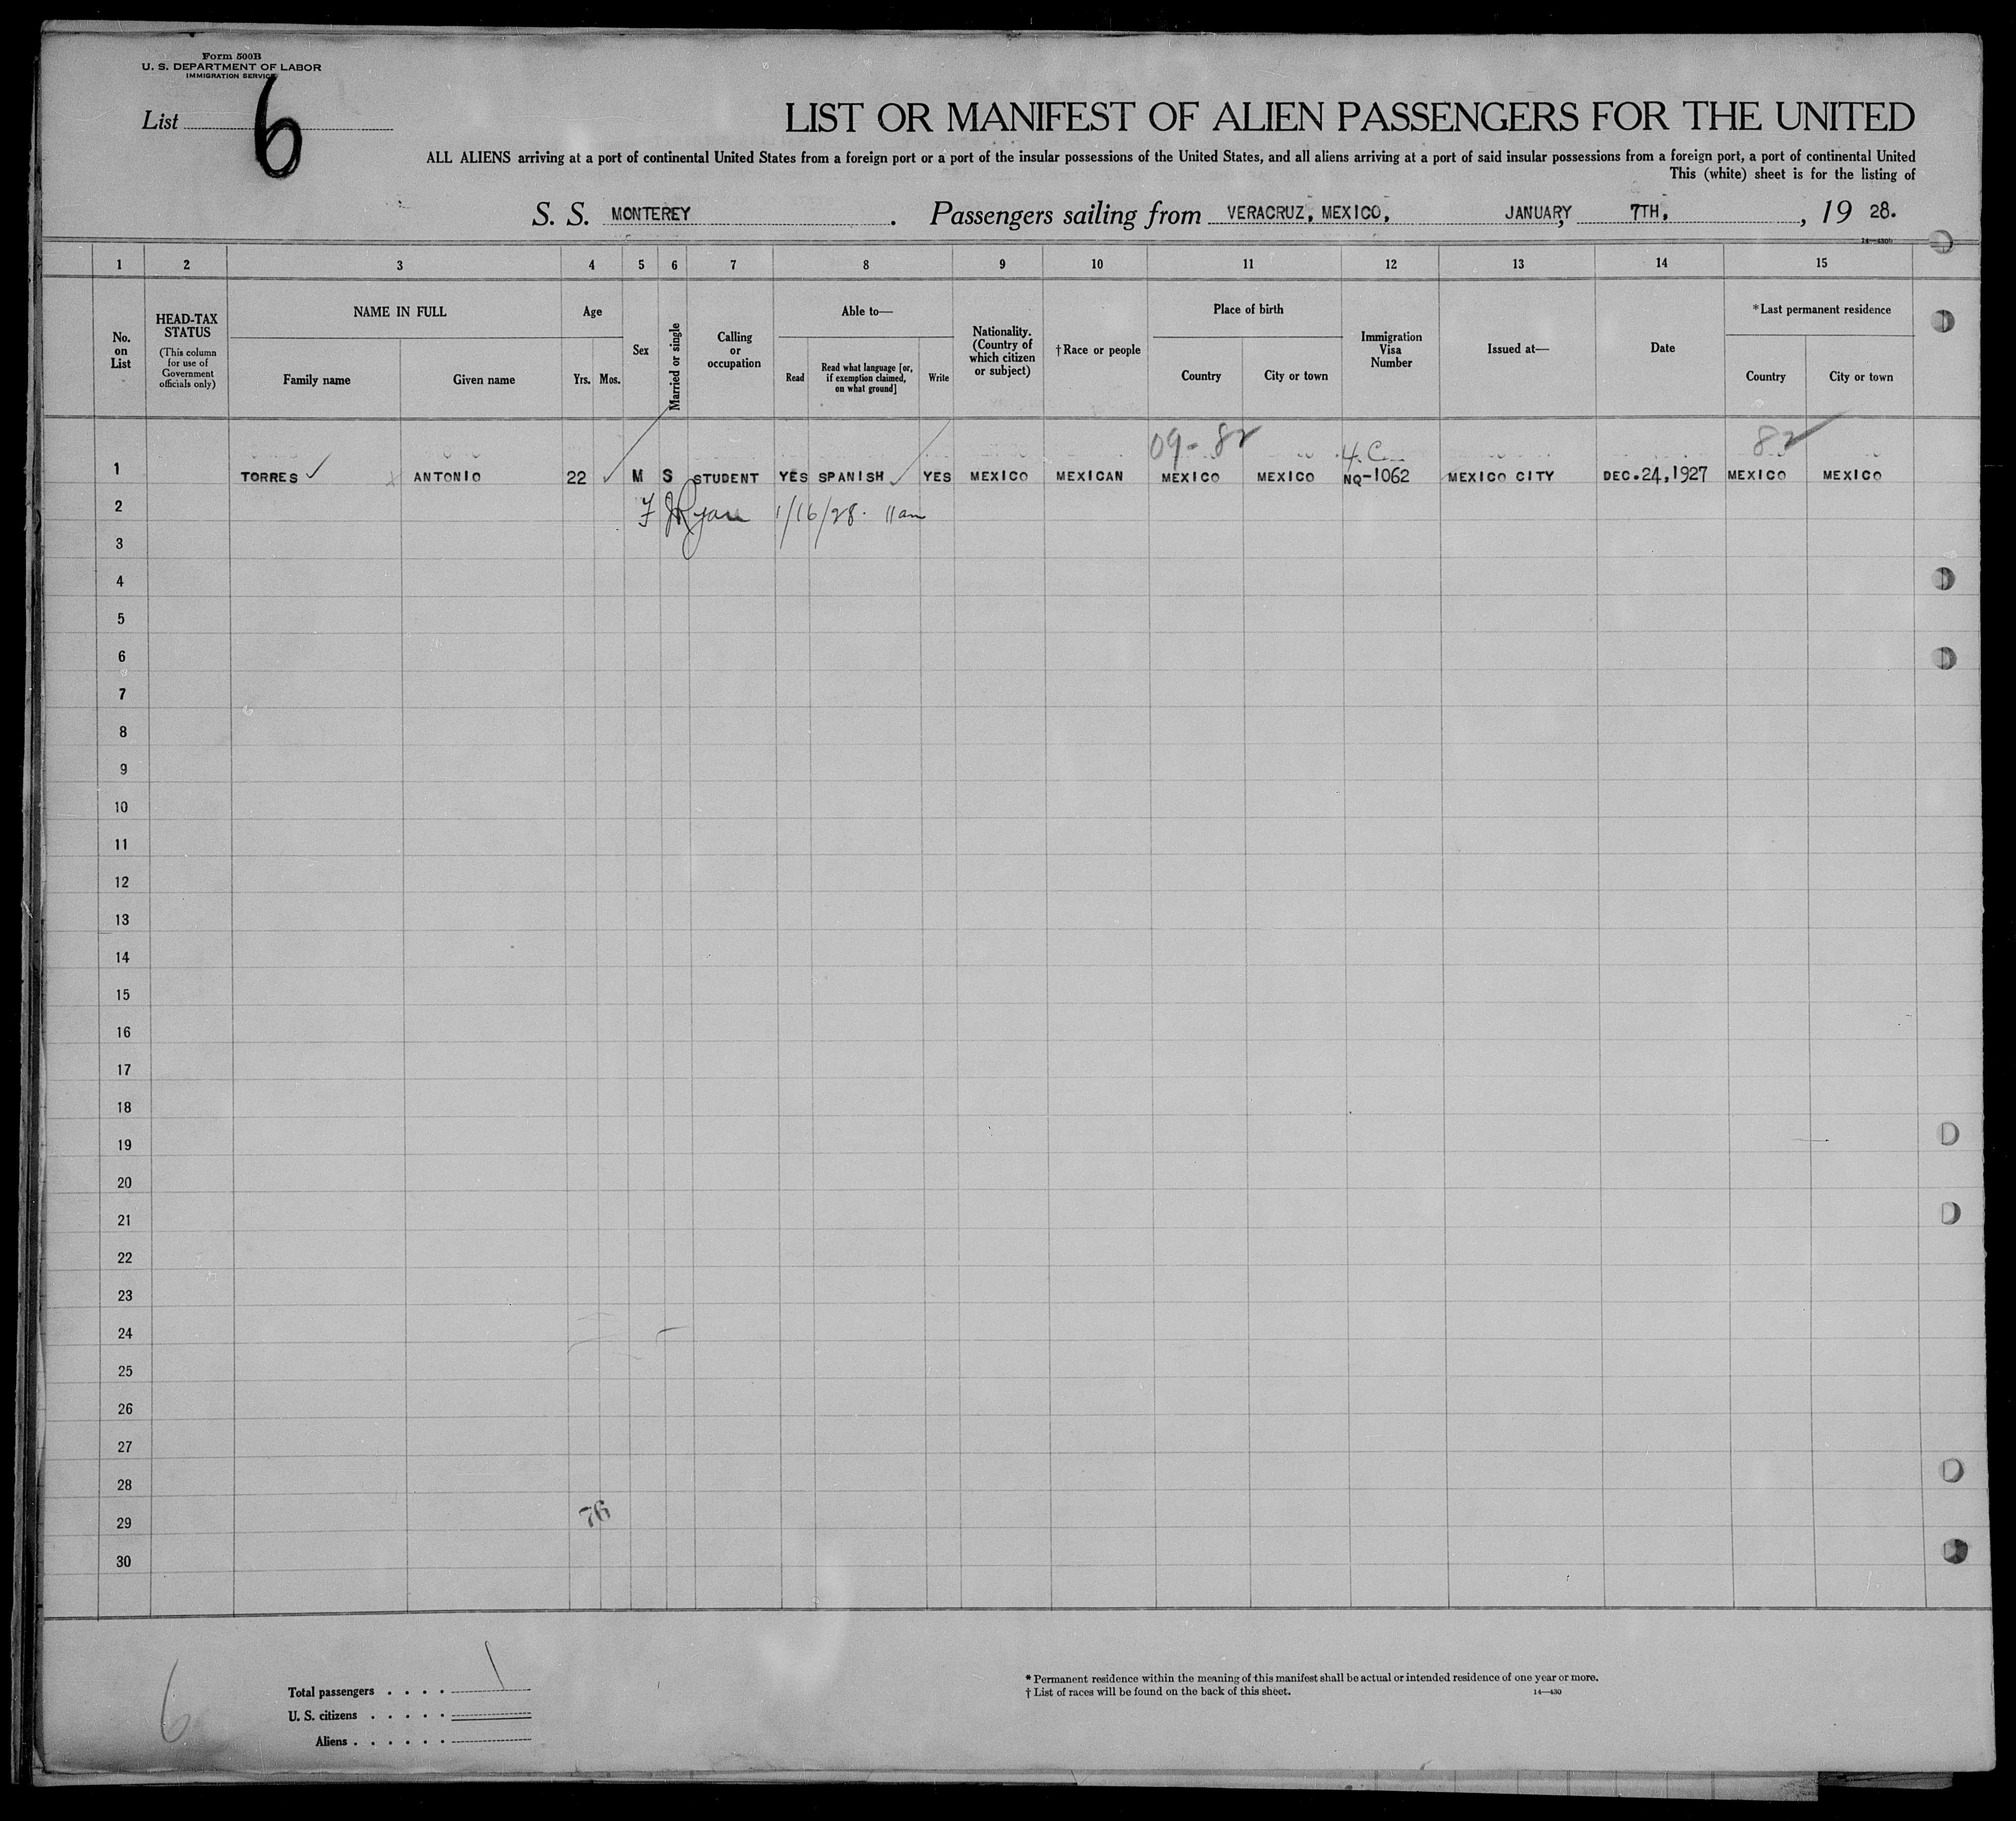 Form 500B
U. S. DEPARTMENT OF LABOR
IMMIGRATION SERVICE
List 6
LIST OR MANIFEST OF ALIEN PASSENGERS FOR THE UNITED
ALL ALIENS arriving at a port of continental United States from a foreign port or a port of the insular possessions of the United States, and all aliens arriving at a port of said insular possessions from a foreign port, a port of continental United
This (white) sheet is for the listing of
S. S. MONTEREY. Passengers sailing from VERACRUZ, MEXICO, JANUARY, 7TH. , 19 28.
14—430b
1 2 3 4 5 6 7 8 9 10 11 12 13 14 15
No. on List
HEAD-TAX STATUS
(This column for use of Government officials only)
NAME IN FULL
Family name Given name
Age
Yrs. Mos.
Sex
Married or single
Calling or occupation
Able to—
Read
Read what language [or, if exemption claimed, on what ground]
Write
Nationality. (Country of which citizen or subject)
†Race or people
Place of birth
Country City or town
Immigration Visa Number
Issued at—
Date
*Last permanent residence
Country City or town
09-82 4.C. 82
1 TORRES ANTONIO 22 M S STUDENT YES SPANISH YES MEXICO MEXICAN MEXICO MEXICO NQ-1062 MEXICO CITY DEC.24,1927 MEXICO MEXICO
2 F J Ryan 1/16/28. 11am
3
4
5
6
7
8
9
10
11
12
13
14
15
16
17
18
19
20
21
22
23
24
25
26
27
28
29 76
30
6
Total passengers . . . . 1
U. S. citizens . . . . .
Aliens . . . . . .
* Permanent residence within the meaning of this manifest shall be actual or intended residence of one year or more.
† List of races will be found on the back of this sheet. 14—430